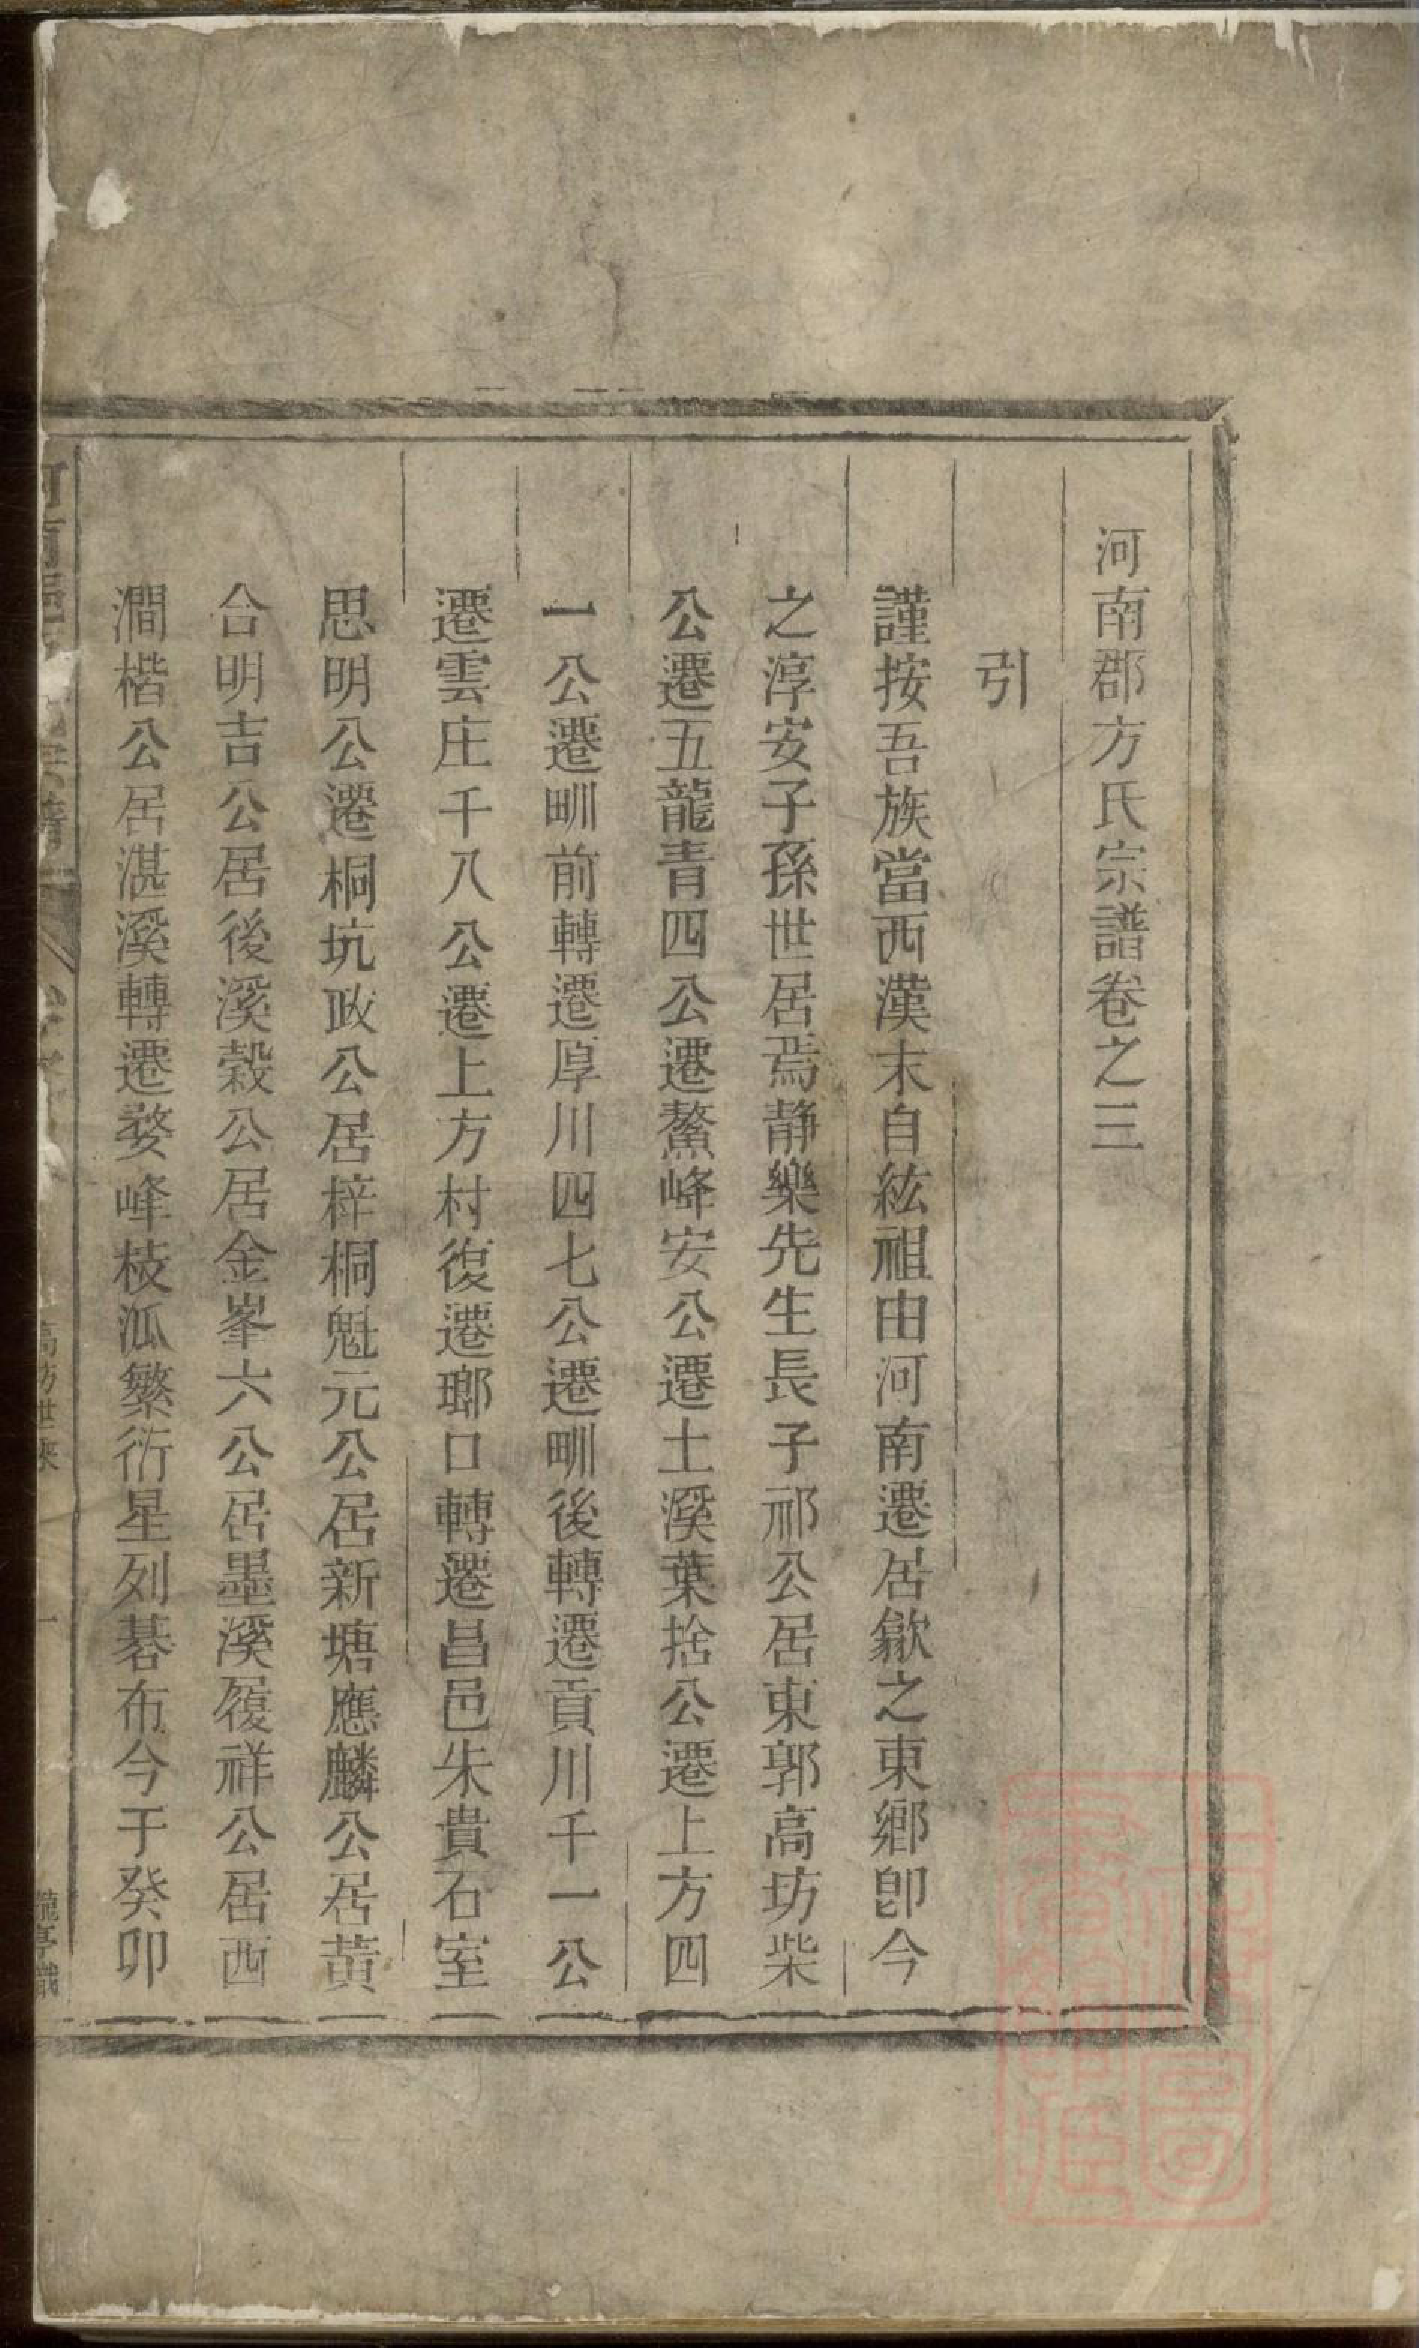 河南郡方氏宗譜卷之三
引
謹按吾族當西漢末自紘祖由河南遷居歙之東鄉卽今
之淳安子孫世居焉静樂先生長子祁公居東郭高坊柴
公遷五龍青四公遷鰲峰安公遷土溪葉捨公遷上方四
一公遷甽前轉遷厚川四七公遷甽後轉遷貢川千一公
遷雲庄千八公遷上方村復遷瑯口轉遷昌邑朱貴石室
思明公遷桐坑政公居梓桐魁元公居新塘應麟公居黄
合明吉公居後溪穀公居金峯六公居墨溪履祥公居西
澗楷公居湛溪轉遷婺峰枝瓜繁衍星列碁布今于癸卯
高坊世系
一